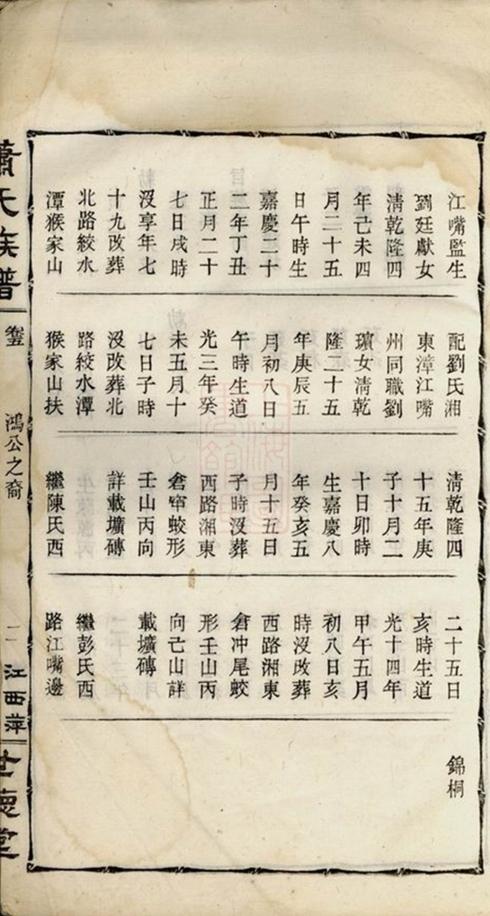 江嘴監生
劉廷獻女
清乾隆四
年己未四
月二十五
日午時生
嘉慶二十
二年丁丑
正月二十
七日戌時
沒享年七
十九改葬
北路絞水
潭猴家山
配劉氏湘
東漳江嘴
州同職劉
瓆女清乾
隆二十五
年庚辰五
月初八日
午時生道
光三年癸
未五月十
七日子時
沒改葬北
路絞水潭
猴家山扶
清乾隆四
十五年庚
子十月二
十日卯時
生嘉慶八
年癸亥五
月十五日
子時沒葬
西路湘東
倉窂蛟形
壬山丙向
詳載壙磚
繼陳氏西
二十五日
亥時生道
光十四年
甲午五月
初八日亥
時沒改葬
西路湘東
倉冲尾蛟
形壬山丙
向亡山詳
載壙磚
繼彭氏西
路江嘴邊
錦桐
蕭氏族譜
鴻公之裔
二
江西萍
世德堂